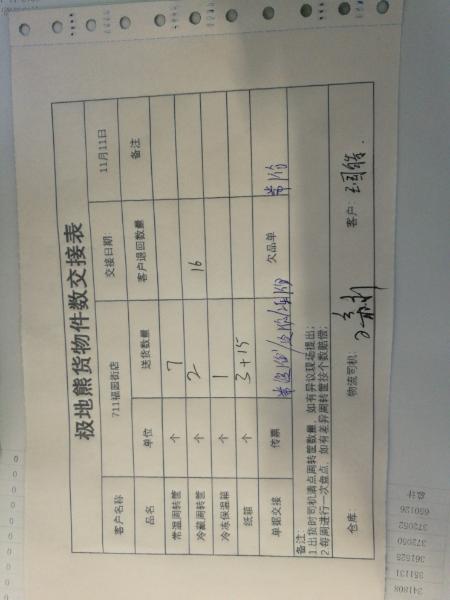 极地熊货物件数交接表
客户名称 711福园街店 交接日期: 11月11日
品名 单位 送货数量 客户退回数量 备注
常温周转筐 个 7
冷藏周转筐 个 2 16
冷冻保温箱 个 1
纸箱 个 3+15
单据交接 传票 欠品单
备注:
1.出货时司机清点周转筐数量，如有异议现场提出;
2.每周进行一次盘点，如有差异周转筐按个数赔偿;
仓库: 物流司机: 客户:
总计
650126
372052
372050
361525
351131
341808